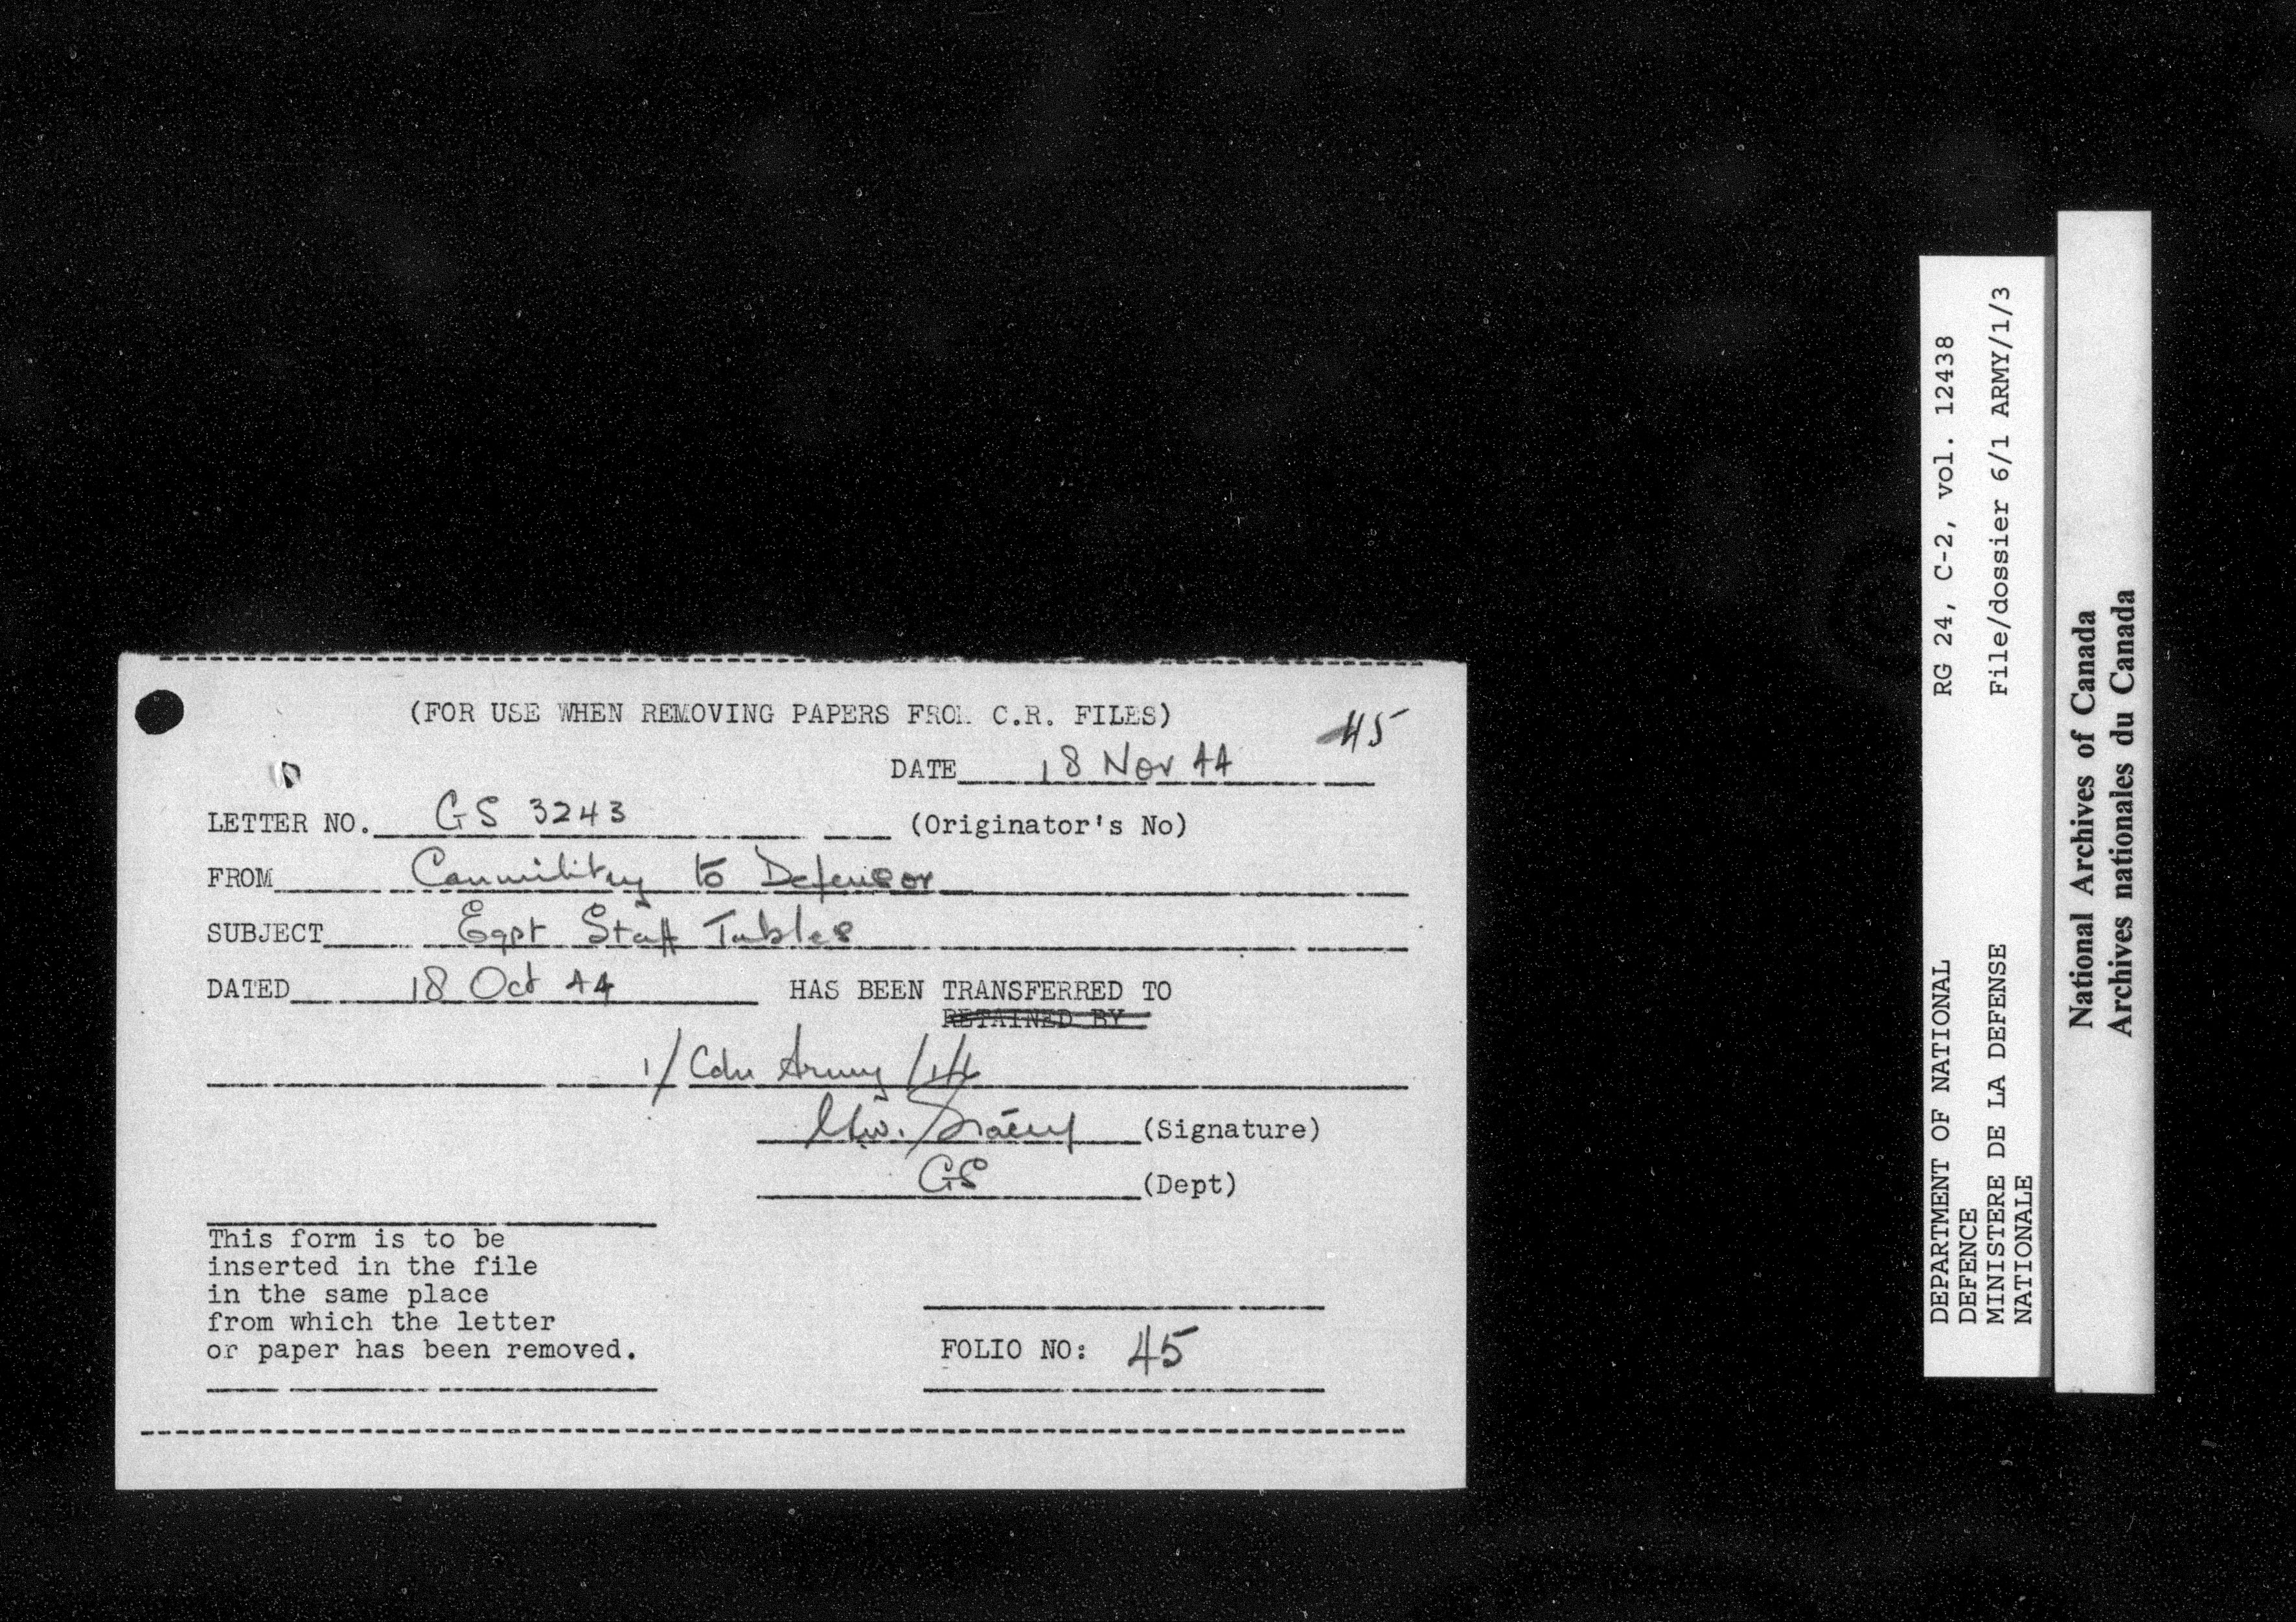 (FOR USE WHEN REMOVING PAPERS FROM C.R. FILES)
45
DATE 18 Nov 44
LETTER NO. GS 3243 (Originator's No)
FROM Canmilitry to Defensor
SUBJECT Eqpt Staff Tables
DATED 18 Oct 44 HAS BEEN TRANSFERRED TO
RETAINED BY
1/Cdn Army/14
(Signature)
GS (Dept)
This form is to be
inserted in the file
in the same place
from which the letter
or paper has been removed.
FOLIO NO: 45
DEPARTMENT OF NATIONAL
DEFENCE
MINISTERE DE LA DEFENSE
NATIONALE
RG 24, C-2, vol. 12438
File/dossier 6/1 ARMY/1/3
National Archives of Canada
Archives nationales du Canada